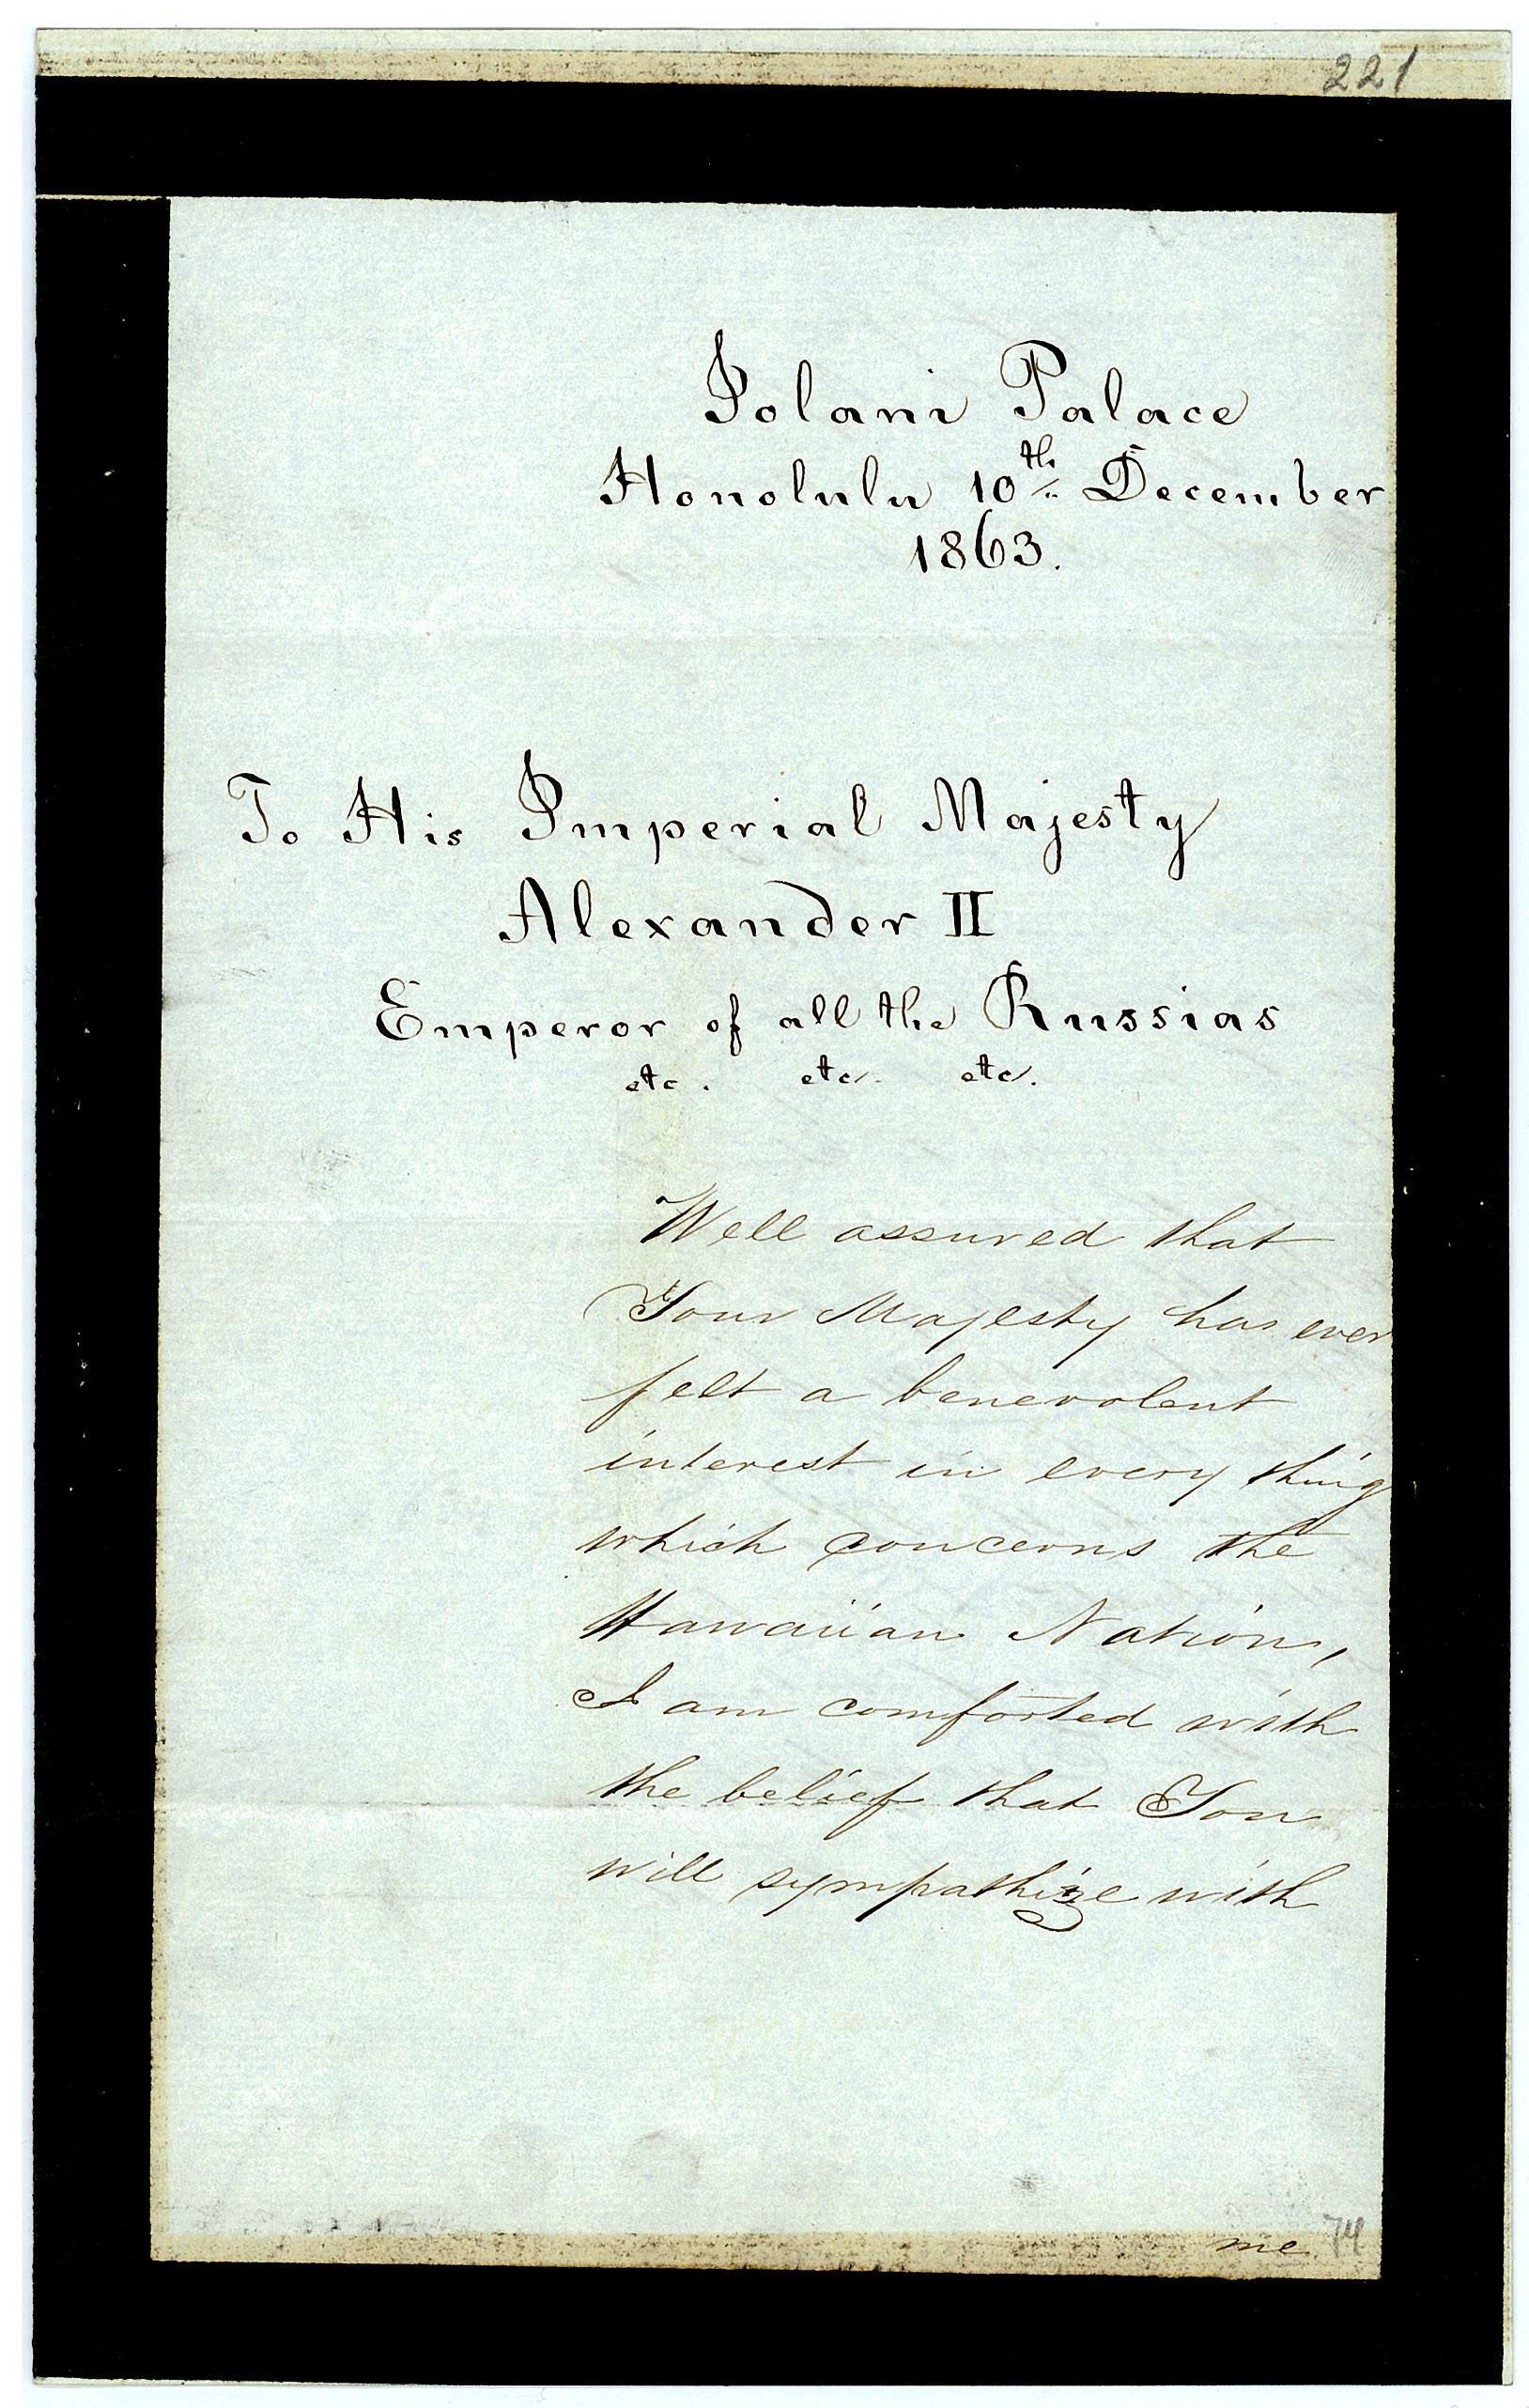 221
Iolani Palace
Honolulu 10th December
1863.
To His Imperial Majesty
Alexander II
Emperor of all the Russias
etc. etc. etc.
Well assured that
Your Majesty has ever
felt a benevolent
interest in every thing
which concerns the
Hawaiian Nation,
I am comforted with
the belief that You
will sympathize with
me
74